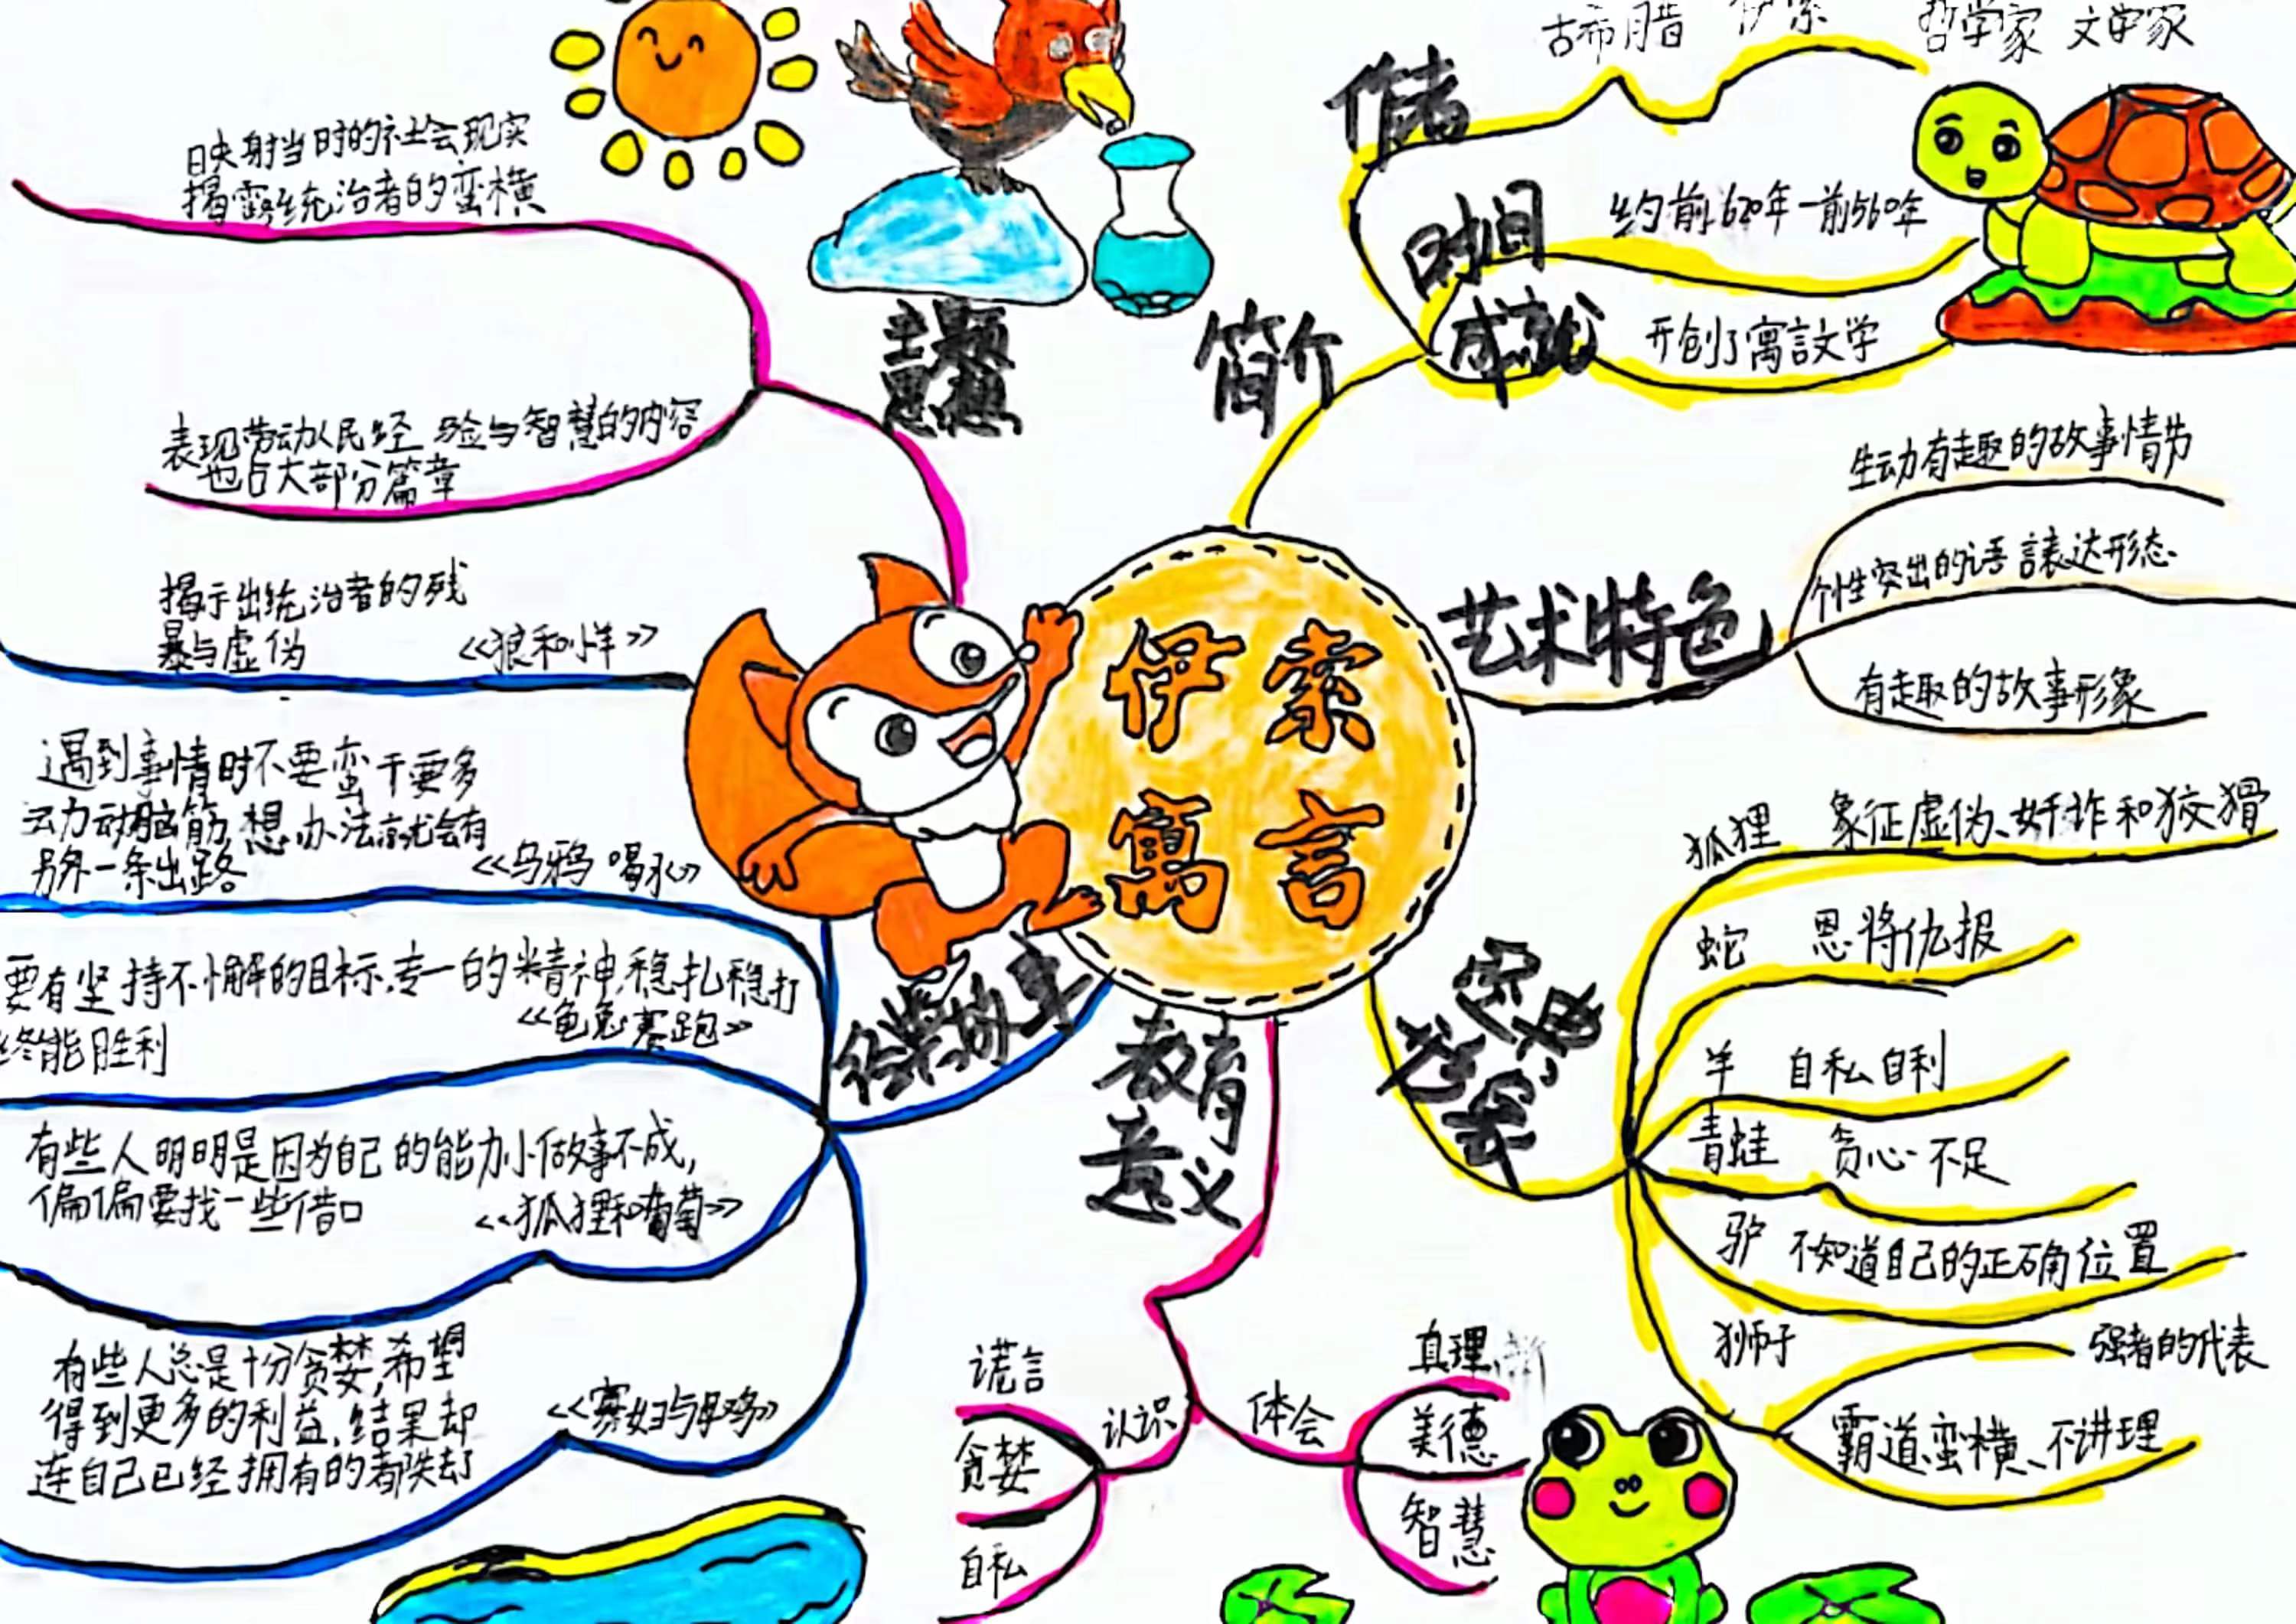 伊索
寓言
简介
作者
古希腊 伊索 哲学家 文学家
时间
约前620年-前560年
成就
开创了寓言文学
艺术特色
生动有趣的故事情节
个性突出的语言表达形态
有趣的故事形象
经典
狐狸 象征虚伪、奸诈和狡猾
蛇 恩将仇报
羊 自私自利
青蛙 贪心不足
驴 不知道自己的正确位置
狮子 强者的代表
霸道蛮横、不讲理
教育
意义
认识
谎言
贪婪
自私
体会
真理、
美德
智慧
故事
揭示出统治者的残
暴与虚伪 《狼和小羊》
遇到事情时不要蛮干要多
动动脑筋,想办法就会有
另外一条出路 《乌鸦喝水》
要有坚持不懈的目标,专一的精神,稳扎稳打
终能胜利 《龟兔赛跑》
有些人明明是因为自己的能力小做事不成,
偏偏要找一些借口 《狐狸和葡萄》
有些人总是十分贪婪,希望
得到更多的利益,结果却
连自己已经拥有的都失去 《寡妇与母鸡》
主题
思想
映射当时的社会现实
揭露统治者的蛮横
表现劳动人民经验与智慧的内容
也占大部分篇章